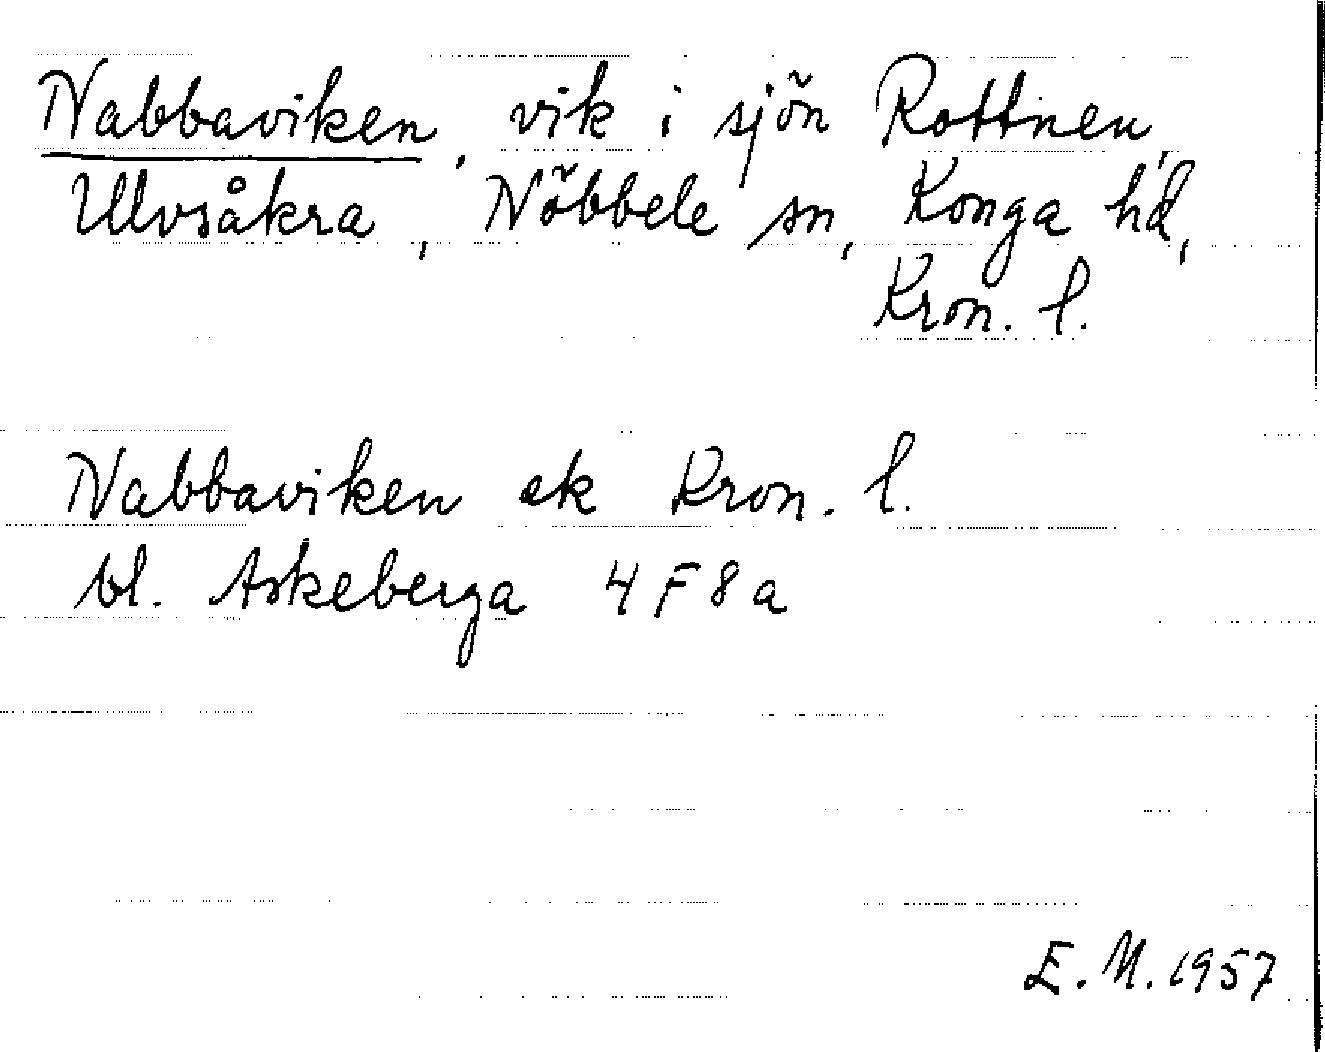 Nabbaviken, vik i sjön Rottnen,
Ulvsåkra, Nöbbele sn, Konga hd,
Kron. l.
Nabbaviken ek Kron. l.
bl. Askeberga 4F8a
E.M. 1957